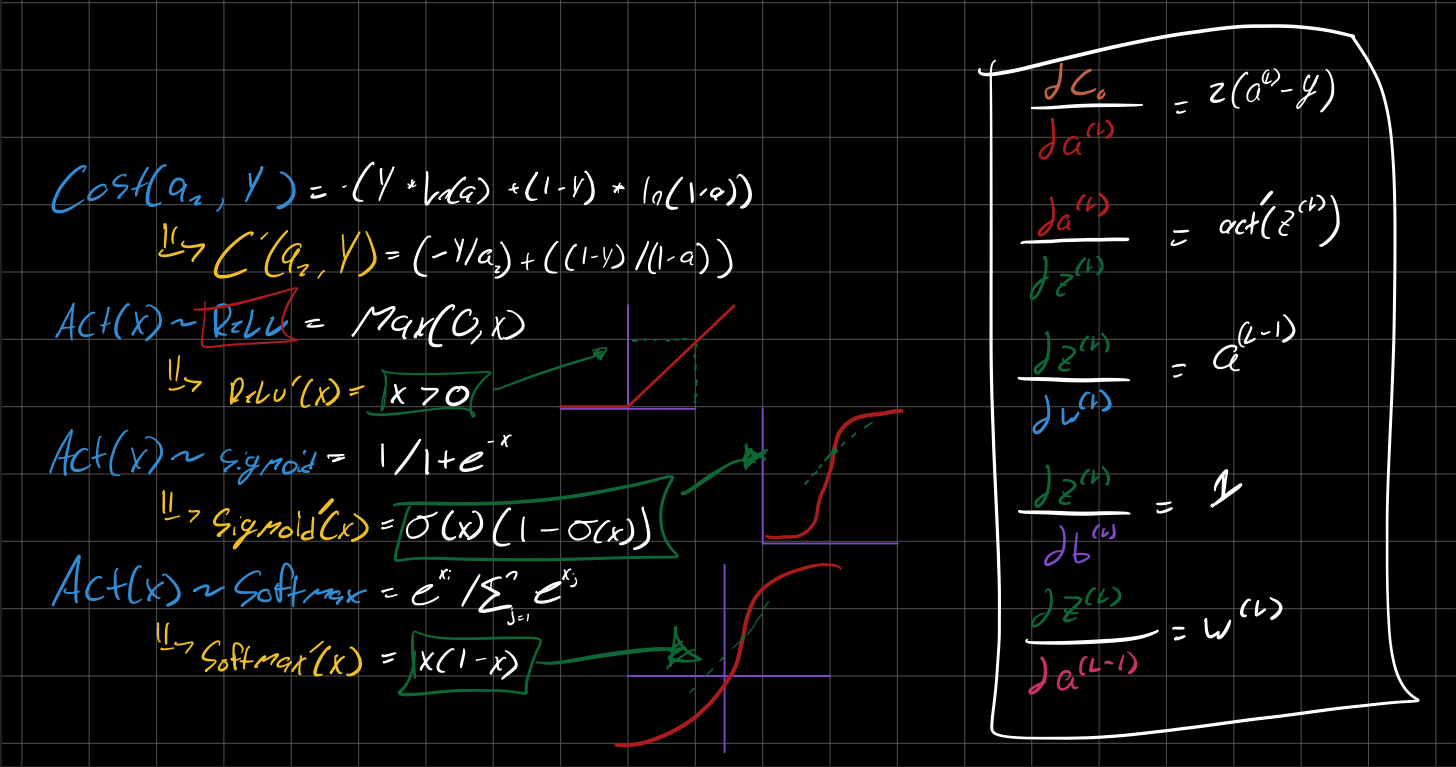 Cost(a₂, Y) = -(Y * ln(a) + (1-Y) * ln(1-a))
C'(a₂, Y) = (-Y/a₂) + ((1-Y)/(1-a))
Act(x) ~ ReLU = Max(0,x)
ReLU'(x) = x > 0
Act(x) ~ sigmoid = 1/1+e^-x
Sigmoid'(x) = σ(x)(1 - σ(x))
Act(x) ~ Softmax = e^xᵢ / ∑ⁿⱼ₌₁ e^xⱼ
Softmax'(x) = x(1-x)
∂C₀ / ∂a^(L) = 2(a^(L) - y)
∂a^(L) / ∂z^(L) = act'(z^(L))
∂z^(L) / ∂w^(L) = a^(L-1)
∂z^(L) / ∂b^(L) = 1
∂z^(L) / ∂a^(L-1) = w^(L)